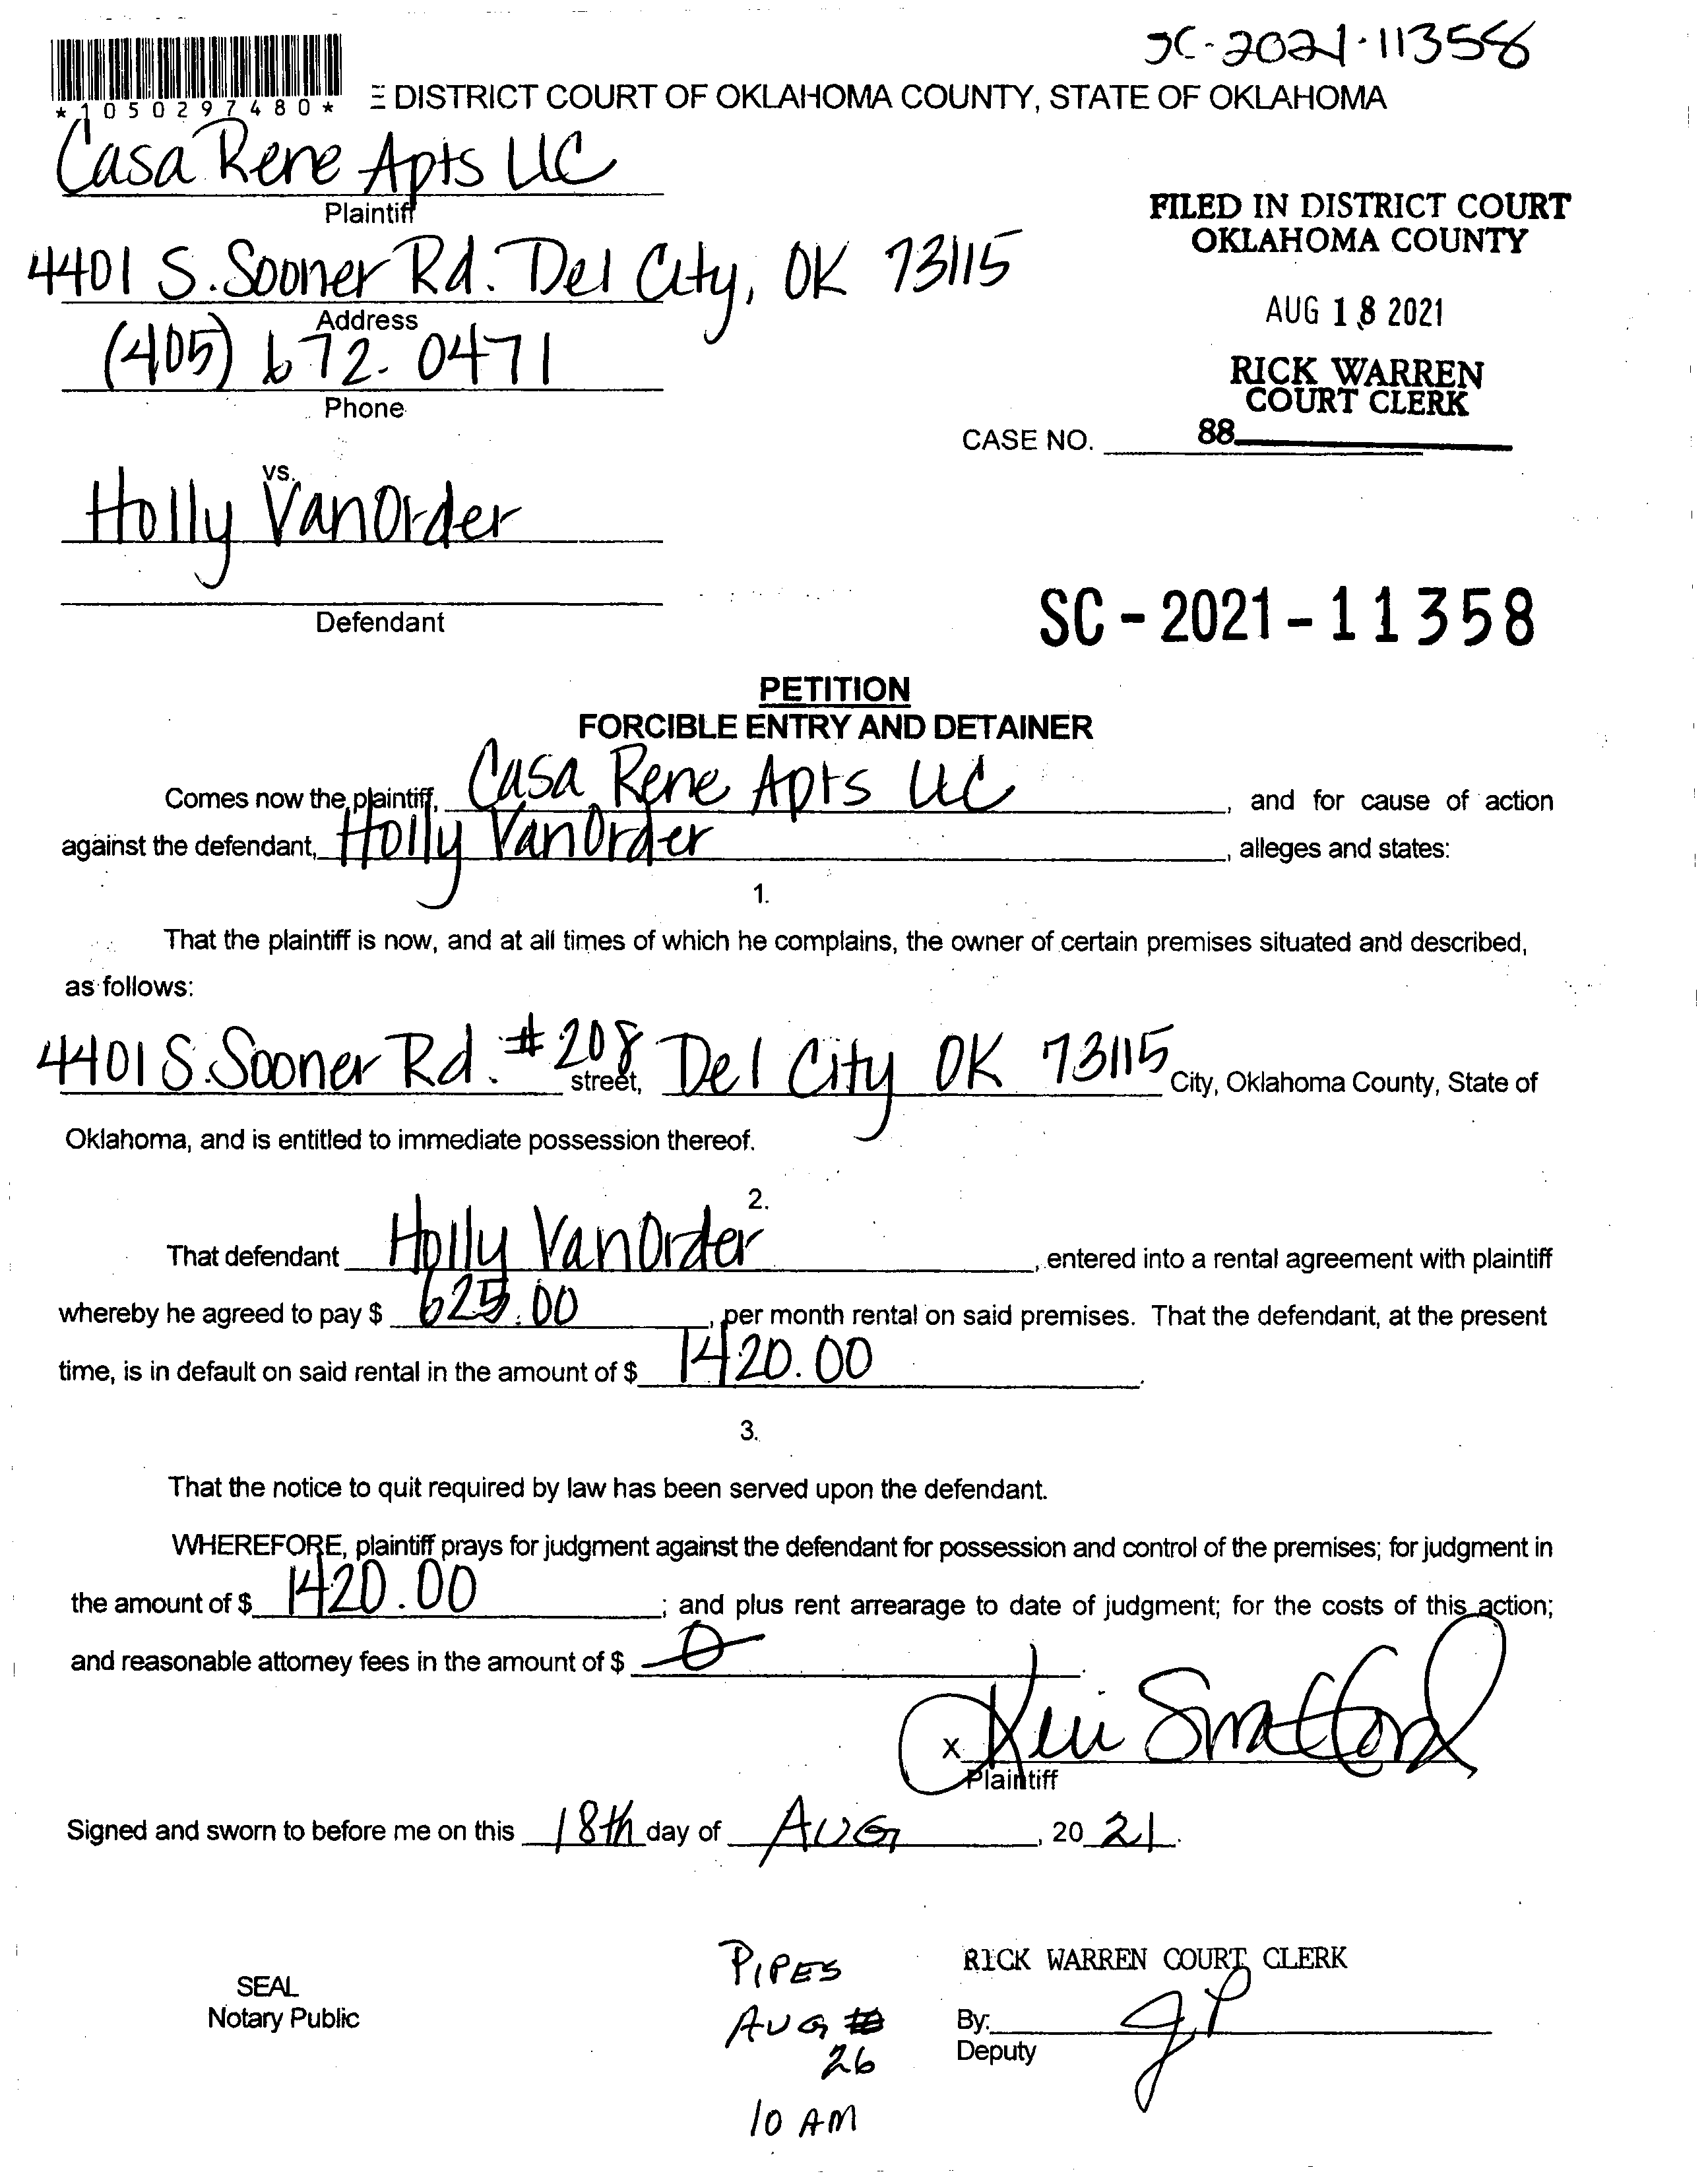 SC-2021-11358
*1050297480*
E DISTRICT COURT OF OKLAHOMA COUNTY, STATE OF OKLAHOMA
Casa Rene Apts LLC
Plaintiff
FILED IN DISTRICT COURT
OKLAHOMA COUNTY
4401 S. Sooner Rd. Del City, OK 73115
Address
AUG 18 2021
(405) 672-0471
Phone
RICK WARREN
COURT CLERK
CASE NO. 88
vs.
Holly VanOrder
Defendant
SC-2021-11358
PETITION
FORCIBLE ENTRY AND DETAINER
Comes now the plaintiff, Casa Rene Apts LLC, and for cause of action
against the defendant, Holly VanOrder, alleges and states:
1.
That the plaintiff is now, and at all times of which he complains, the owner of certain premises situated and described,
as follows:
4401 S. Sooner Rd. #208 street, Del City OK 73115 City, Oklahoma County, State of
Oklahoma, and is entitled to immediate possession thereof.
2.
That defendant Holly VanOrder, entered into a rental agreement with plaintiff
whereby he agreed to pay $ 625.00, per month rental on said premises. That the defendant, at the present
time, is in default on said rental in the amount of $ 1420.00.
3.
That the notice to quit required by law has been served upon the defendant.
WHEREFORE, plaintiff prays for judgment against the defendant for possession and control of the premises; for judgment in
the amount of $ 1420.00; and plus rent arrearage to date of judgment; for the costs of this action;
and reasonable attorney fees in the amount of $ 0.
X
Plaintiff
Signed and sworn to before me on this 18th day of AUG, 20 21.
SEAL
Notary Public
PIPES
AUG
26
10 AM
RICK WARREN COURT CLERK
By: JP
Deputy